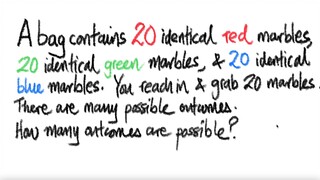 A bag contains 20 identical red marbles,
20 identical green marbles, & 20 identical
blue marbles. You reach in & grab 20 marbles.
There are many possible outcomes.
How many outcomes are possible?